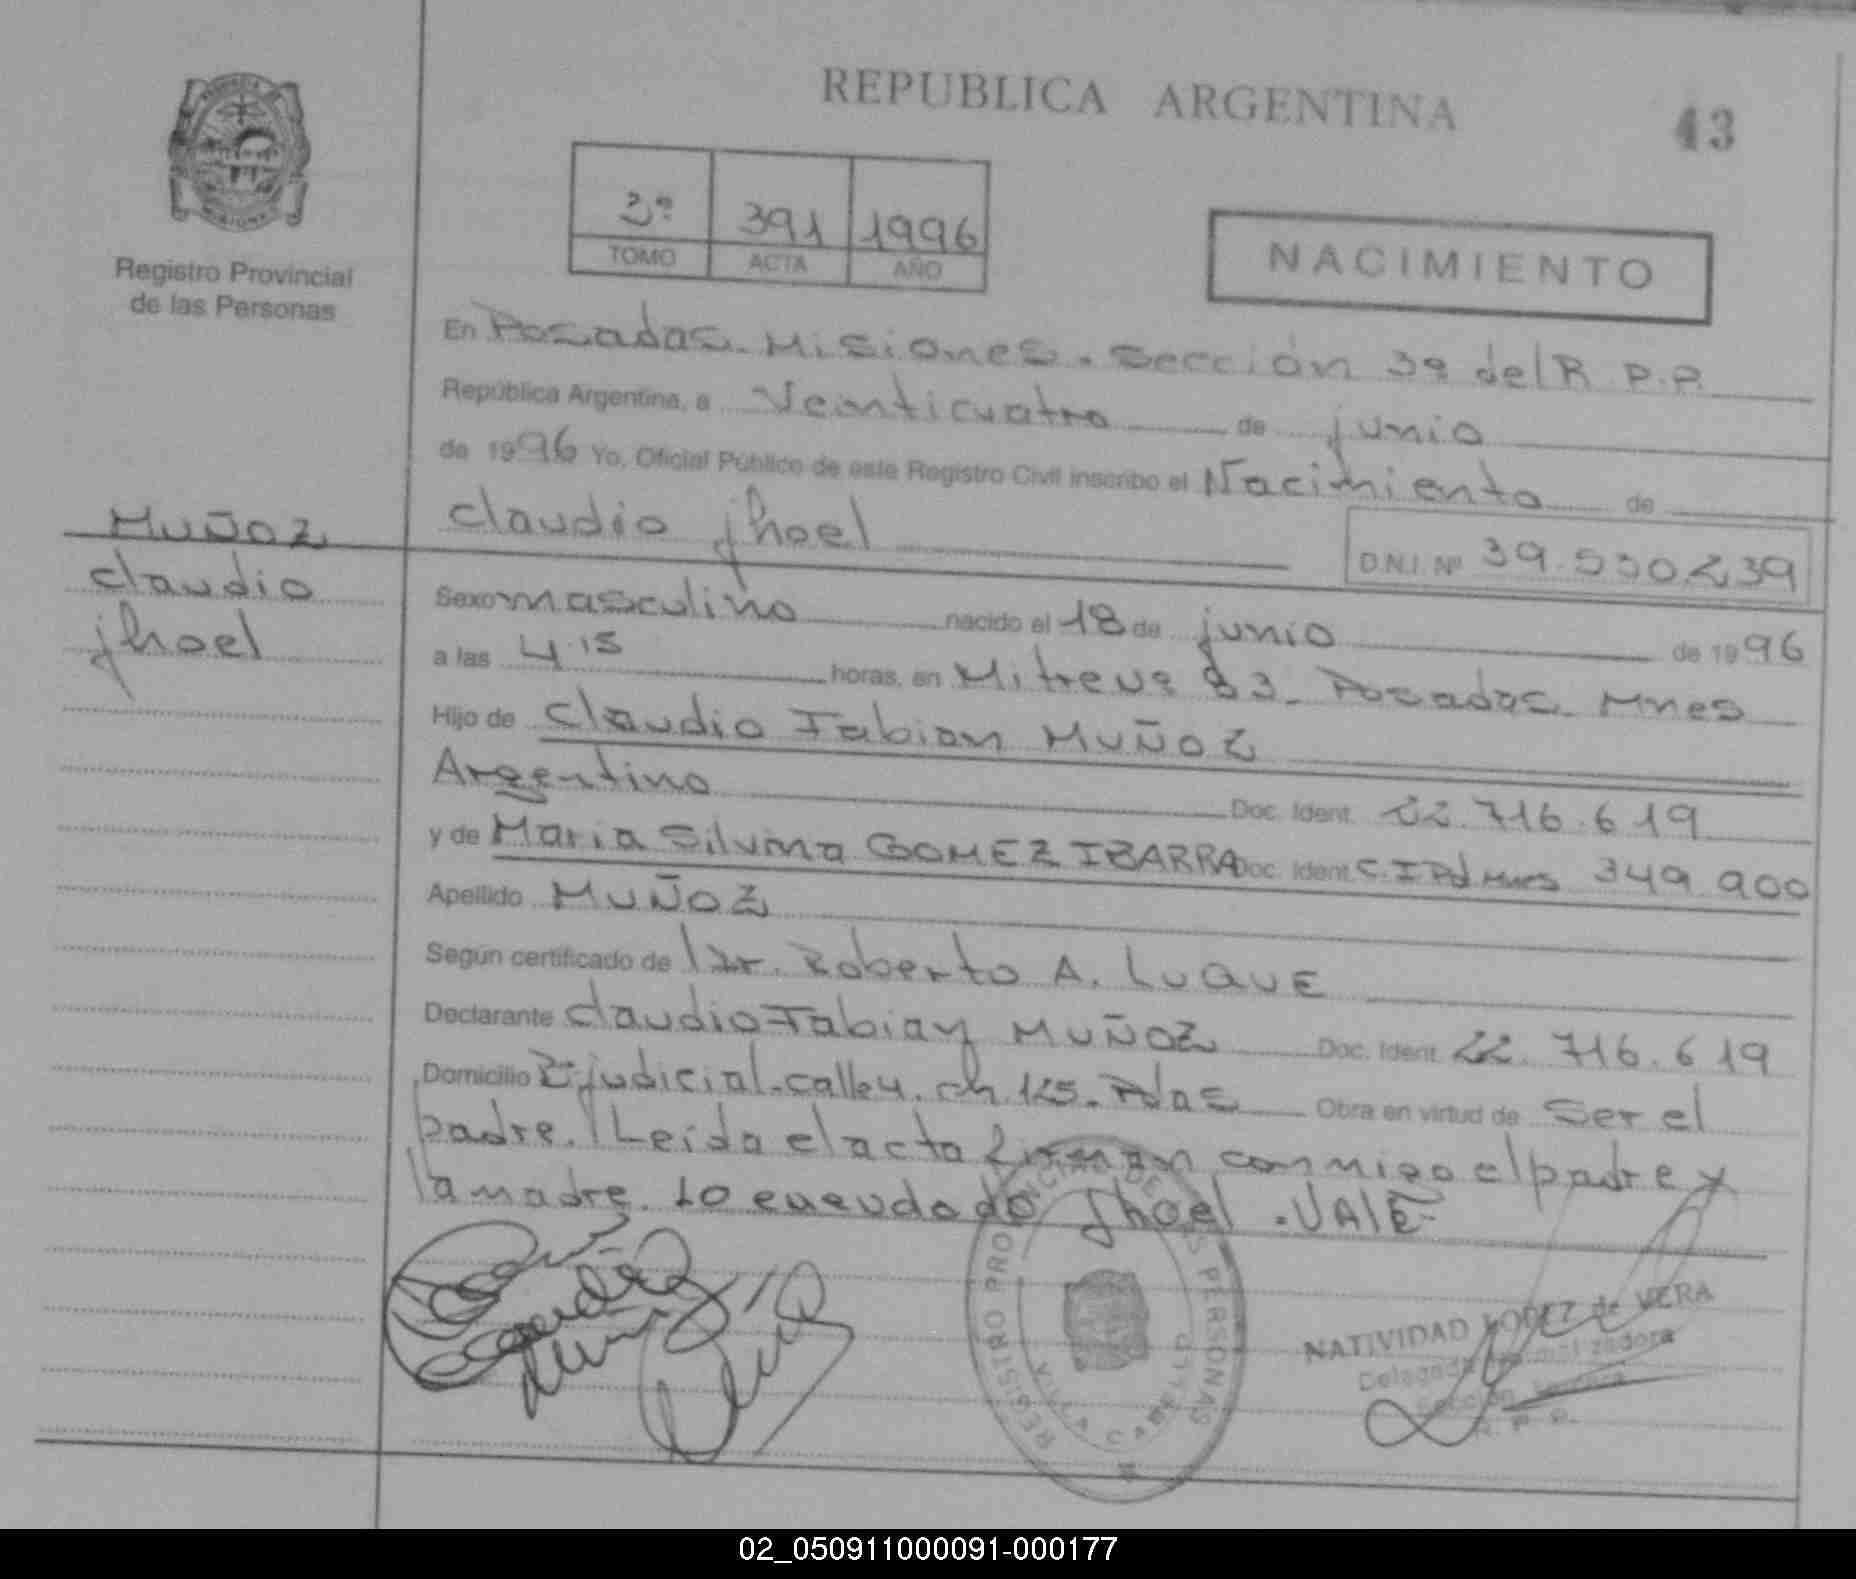 REPUBLICA ARGENTINA
43
Registro Provincial
de las Personas
2º 391 1996
TOMO ACTA AÑO
NACIMIENTO
En Posadas. Misiones. Sección 3ª del R. P.P.
República Argentina, a Veinticuatro de junio
de 1996 Yo, Oficial Público de este Registro Civil inscribo el Nacimiento de
claudio jhoel
D.N.I. Nº 39.530.239
MUÑOZ
claudio
jhoel
Sexo masculino nacido el 18 de junio de 1996
a las 4.15 horas, en Mitre Nº 83 Posadas Mnes
Hijo de Claudio Fabian MUÑOZ
Argentino Doc. Ident. 22.716.619
y de Maria Silvina GOMEZ IBARRA Doc. Ident. C.I. Pol Mnes 349.900
Apellido MUÑOZ
Según certificado de Dr. Roberto A. LUQUE
Declarante Claudio Fabian MUÑOZ Doc. Ident. 22.716.619
Domicilio Bº judicial. calle 4. ch. 125. Pdas Obra en virtud de ser el
padre. Leída el acta firman conmigo el padre y
la madre. Lo enmendado Jhoel. VALE
REGISTRO PROVINCIAL DE LAS PERSONAS
VILLA CABELLO
NATIVIDAD LOPEZ de VERA
Delegada Normalizadora
Sección Tercera
R. P. P.
02_050911000091-000177